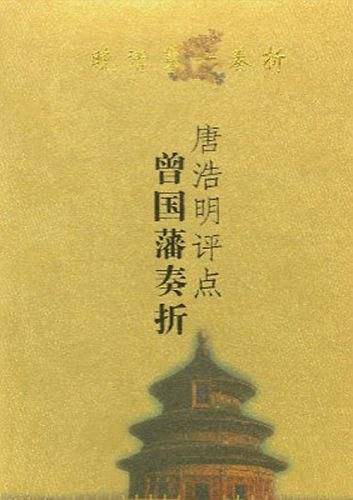 晚清第一奏折
唐浩明评点
曾国藩奏折